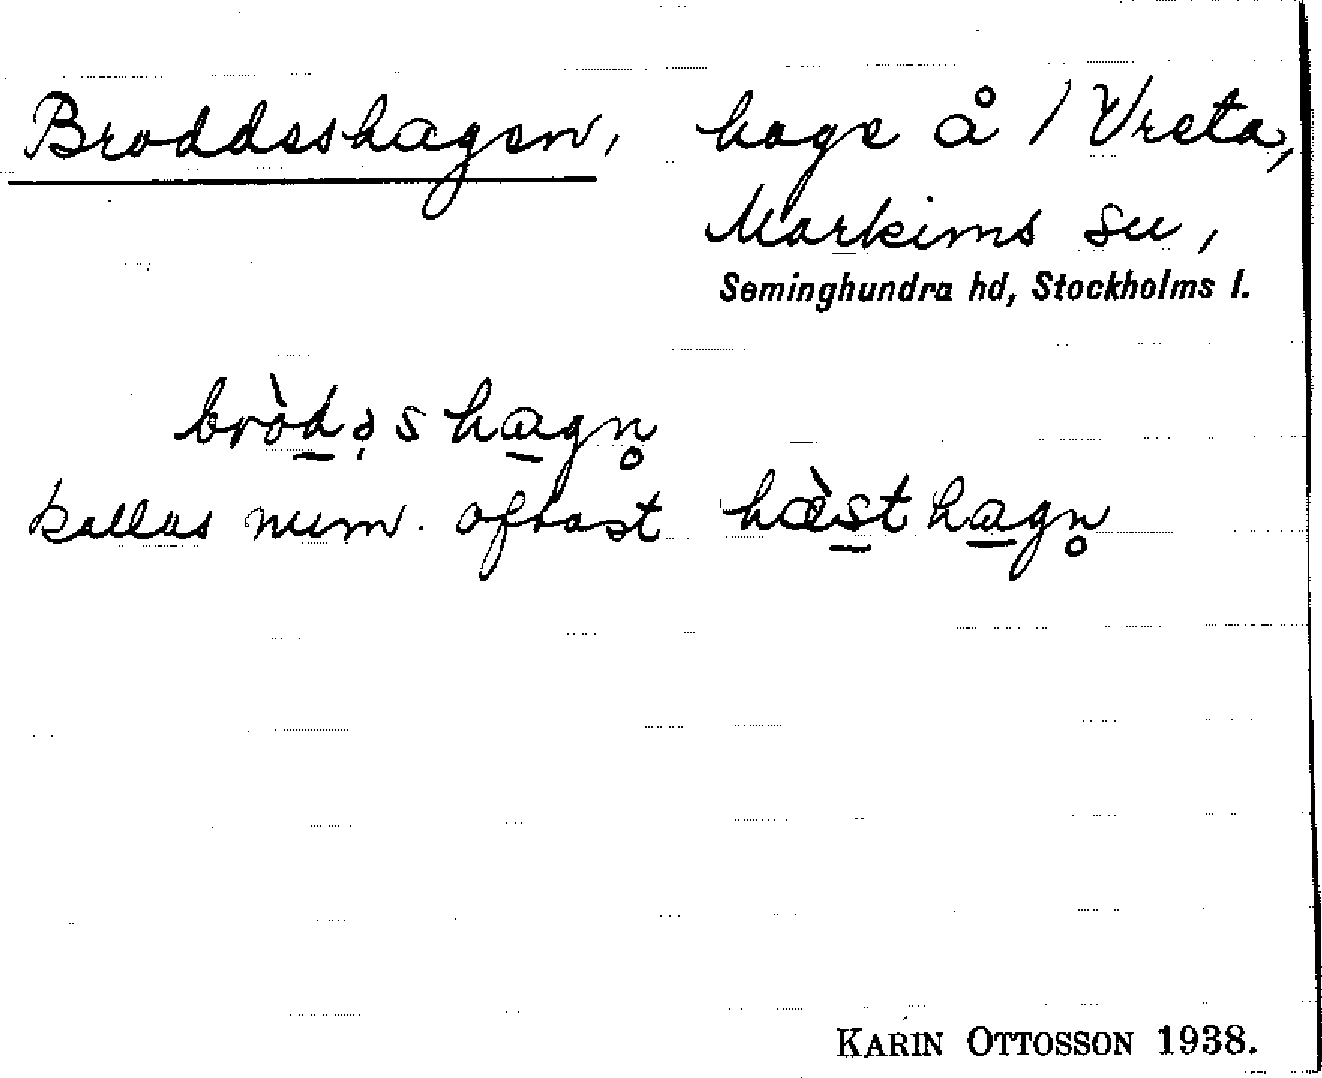 Broddesshagen, hage å 1 Vreta,
Markims sn,
Seminghundra hd, Stockholms l.
bròd̲ə̩sha̲gn̥
kallas num. oftast hæ̀s̲tha̲gn̥
KARIN OTTOSSON 1938.